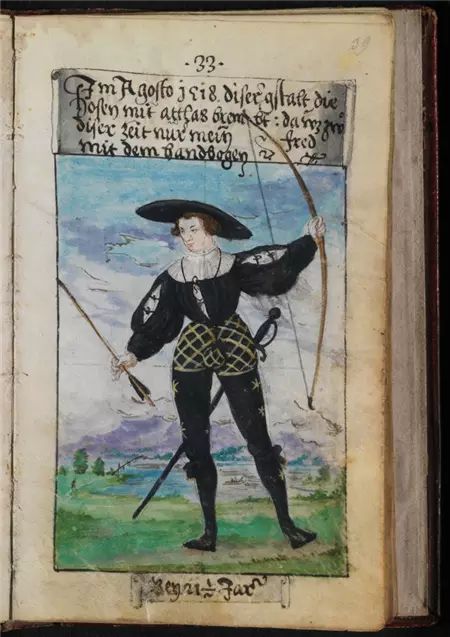 39
·33·
Im Agosto 1518. diser gstalt die
hosen mit atthas brembt: dan zů
diser zeit nur mein fred
mit dem handbogen
Bey 21 ½ Jar